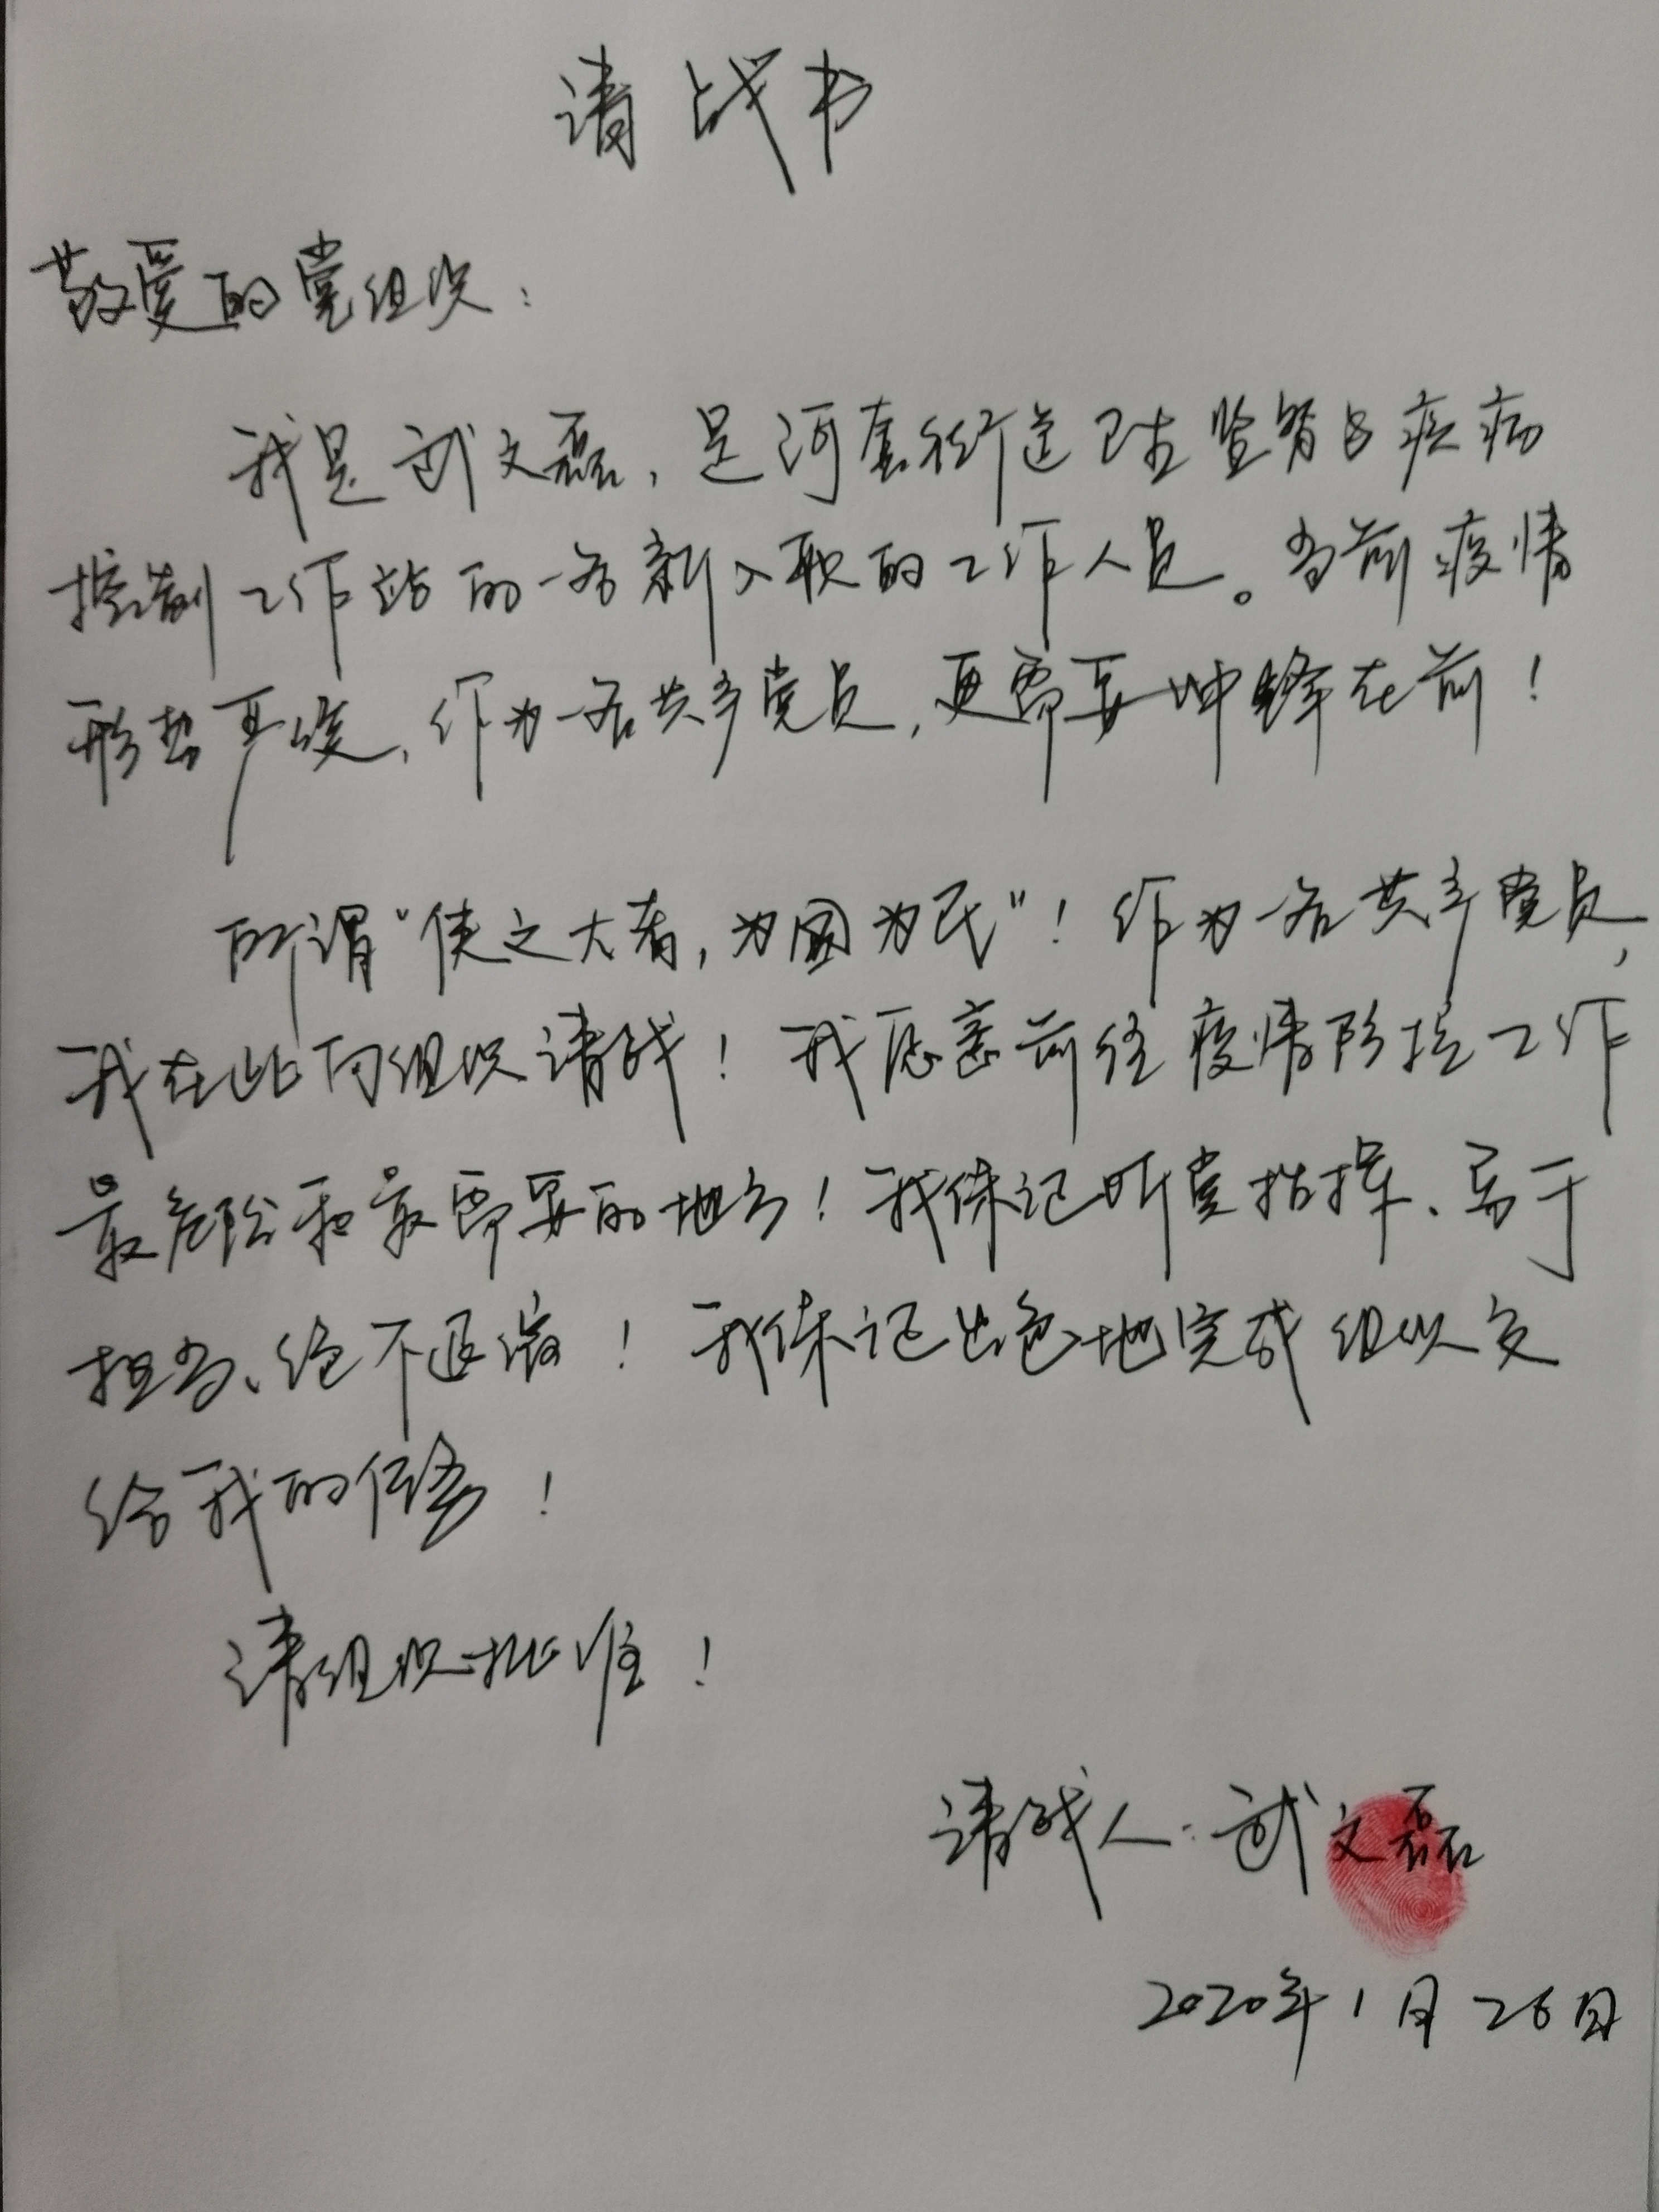 请战书
敬爱的党组织：
我是武文磊，是河套街道卫生监督与疾病
控制工作站的一名新入职的工作人员。当前疫情
形势严峻，作为一名共产党员，更需要冲锋在前！
所谓“侠之大者，为国为民”！作为一名共产党员，
我在此向组织请战！我愿意前往疫情防控工作
最危险和最需要的地方！我保证听党指挥、勇于
担当、绝不退缩！我保证出色地完成组织交
给我的任务！
请组织批准！
请战人：武文磊
2020年1月26日